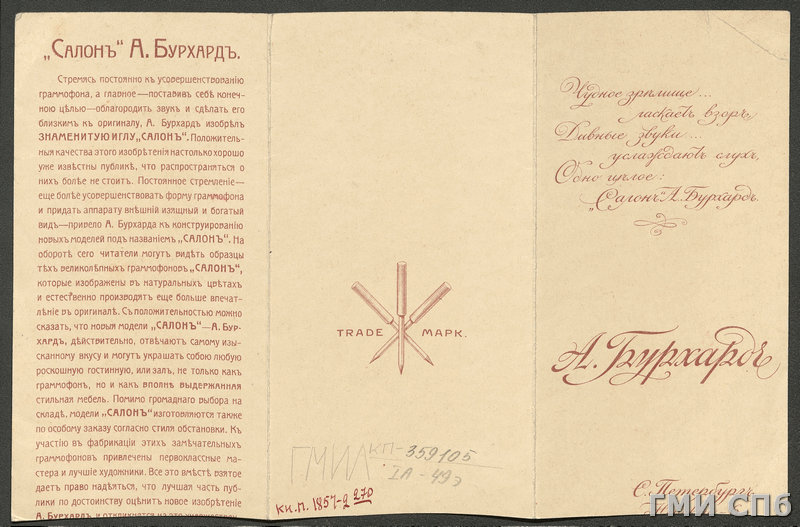 „Салонъ“ А. Бурхардъ.
Стремясь постоянно къ усовершенствованію
граммофона, а главное—поставивъ себѣ конеч-
ною цѣлью—облагородить звукъ и сдѣлать его
близкимъ къ оригиналу, А. Бурхардъ изобрѣлъ
ЗНАМЕНИТУЮ ИГЛУ „САЛОНЪ“. Положитель-
ныя качества этого изобрѣтенія настолько хорошо
уже извѣстны публикѣ, что распространяться о
нихъ болѣе не стоитъ. Постоянное стремленіе—
еще болѣе усовершенствовать форму граммофона
и придать аппарату внѣшній изящный и богатый
видъ—привело А. Бурхарда къ конструированію
новыхъ моделей подъ названіемъ „САЛОНЪ“. На
оборотѣ сего читатели могутъ видѣть образцы
тѣхъ великолѣпныхъ граммофоновъ „САЛОНЪ“,
которые изображены въ натуральныхъ цвѣтахъ
и естественно производятъ еще больше впечат-
лѣніе въ оригиналѣ. Съ положительностью можно
сказать, что новыя модели „САЛОНЪ“—А. Бур-
хардъ, дѣйствительно, отвѣчаютъ самому изы-
сканному вкусу и могутъ украшать собою любую
роскошную гостинную, или залъ, не только какъ
граммофонъ, но и какъ вполнѣ выдержанная
стильная мебель. Помимо громаднаго выбора на
складѣ, модели „САЛОНЪ“ изготовляются также
по особому заказу согласно стиля обстановки. Къ
участію въ фабрикаціи этихъ замѣчательныхъ
граммофоновъ привлечены первоклассные мас-
тера и лучшіе художники. Все это вмѣстѣ взятое
даетъ право надѣяться, что лучшая часть пуб-
лики по достоинству оцѣнитъ новое изобрѣтеніе
А. Бурхардъ и откликнется на это
TRADE МАРК.
ГМИЛ КП-359105
IА-49э
Кн.п. 1857-2 270
Чудное зрѣлище...
ласкаетъ взоръ,
Дивные звуки...
услаждаютъ слухъ,
Одно цѣлое:
„Салонъ“ А. Бурхардъ.
А. Бурхардъ
С. Петербургъ
ГМИ СПб